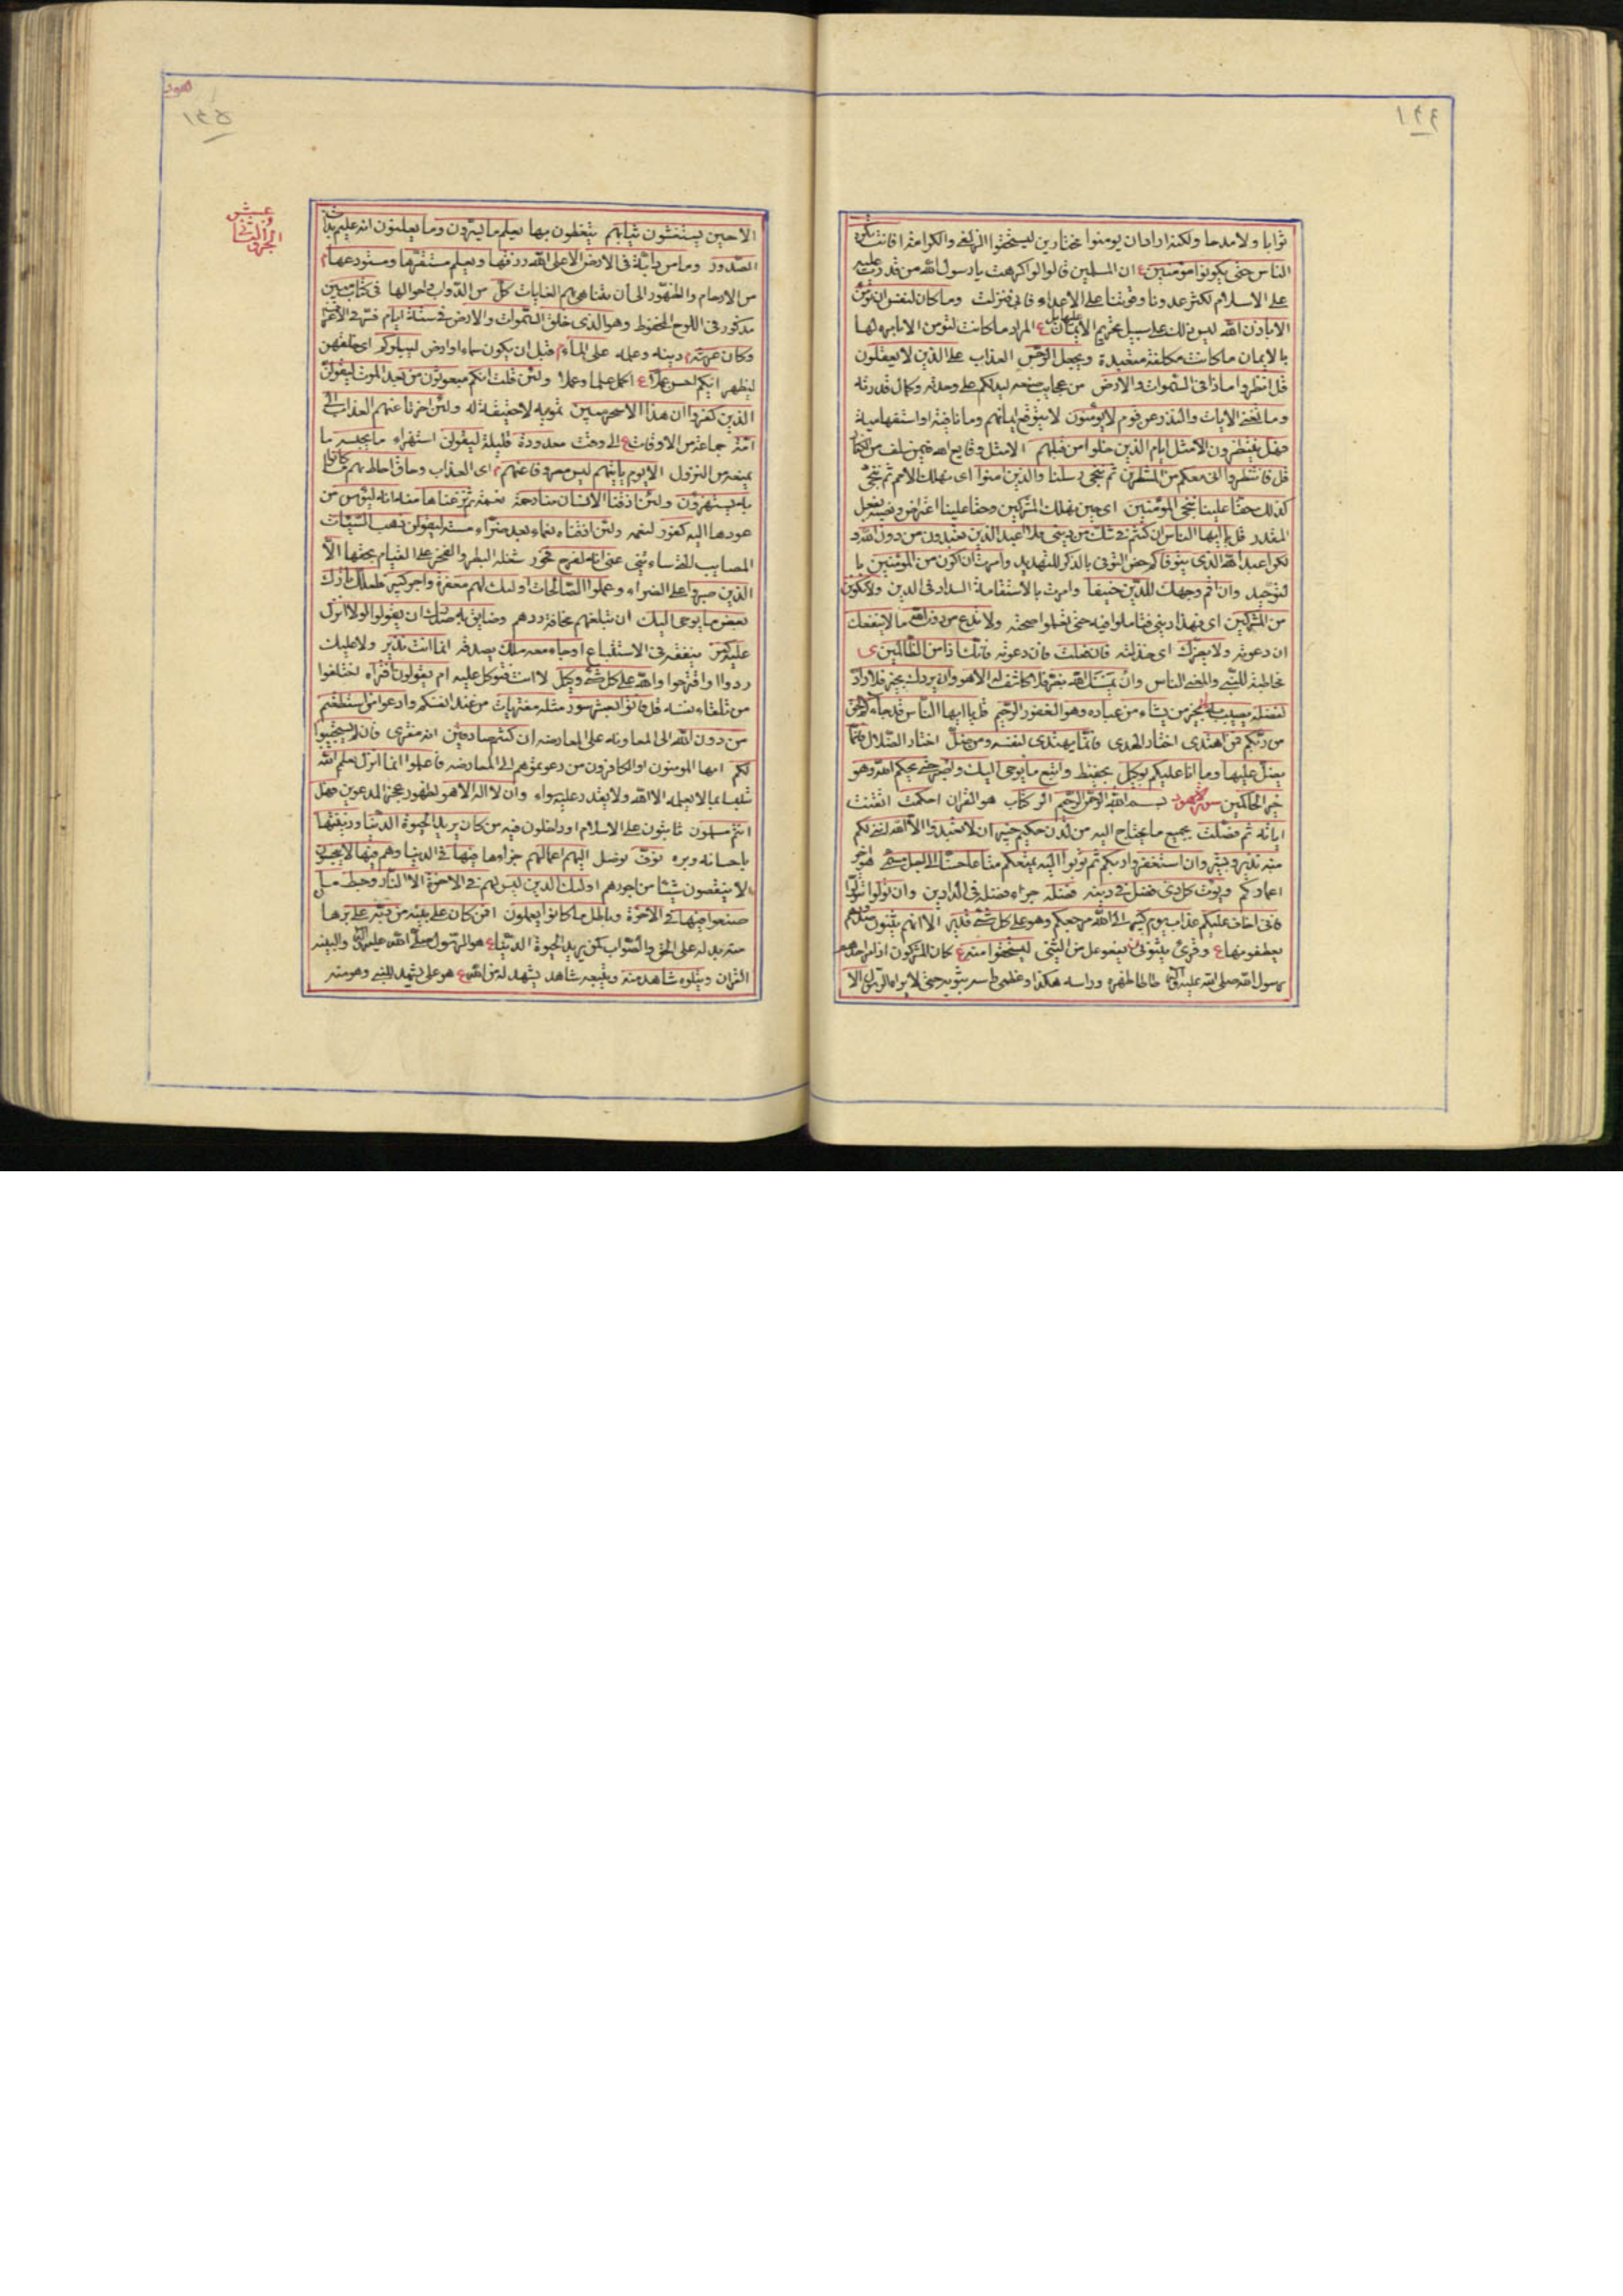 ١٢٤
ثوابا ولا مدحا ولكنه اراد ان يومنوا مختارين ليستحقوا الزلفى والكرامة افانت تكره
الناس حتى يكونوا مومنين ع ان المسلمين قالوا لو اكرهت يا رسول الله من قدرت عليه
على الاسلام لكثر عددنا وقوتنا على الاعداء فنزلت وما كان لنفس ان تومن
الا باذن الله ليس ذلك على سبيل تحريم الايمان عليها بل المراد ما كانت لتومن الا بامره لها
بالايمان ما كانت مكلفة متعبدة ويجعل الرجس العذاب على الذين لا يعقلون
قل انظروا ماذا في السموات والارض من عجايب صنعه ليدلكم على وحدته وكمال قدرته
وما تغني الايات والنذر عن قوم لا يومنون لا يتوقع ايمانهم وما نافية او استفهامية
فهل ينتظرون الا مثل ايام الذين خلوا من قبلهم الا مثل وقايع الله فيمن سلف من الكفار
قل فانتظروا اني معكم من المنتظرين ثم ننجي رسلنا والذين امنوا اي نهلك الامم ثم ننجي
كذلك حقا علينا ننجي المؤمنين اي حين نهلك المشركين وحقا علينا اعتراض ونصبه بفعل
المقدر قل يا ايها الناس ان كنتم في شك من ديني فلا اعبد الذين تعبدون من دون الله و
لكن اعبد الله الذي يتوفاكم خص التوفي بالذكر للتهديد وامرت ان اكون من المؤمنين با
لتوحيد وان اقم وجهك للدين حنيفا وامرت بالاستقامة السداد في الدين ولا تكونن
من المشركين اي فهذا ديني فتاملوا فيه حتى تعلموا صحته ولا تدع من دون الله ما لا ينفعك
ان دعوته ولا يضرك اي خذلته فان فعلت فان دعوته فانك اذا من الظالمين ى
مخاطبة للنبي والمعنى الناس وان يمسسك الله بضر فلا كاشف له الا هو وان يردك بخير فلا راد
لفضله يصيب به بالخير من يشاء من عباده وهو الغفور الرحيم قل يا ايها الناس قد جاءكم الحق
من ربكم فمن اهتدى اختار الهدى فانما يهتدي لنفسه ومن ضل اختار الضلال فانما
يضل عليها وما انا عليكم بوكيل بحفيظ واتبع ما يوحى اليك واصبر حتى يحكم الله وهو
خير الحاكمين سورة هود بسم الله الرحمن الرحيم الر كتاب هو القران احكمت اتقنت
اياته ثم فصلت بجميع ما يحتاج اليه من لدن حكيم خبير ان لا تعبدوا الا الله انني لكم
منه نذير وبشير وان استغفروا ربكم ثم توبوا اليه يمتعكم متاعا حسنا الى اجل مسمى هو اخر
اعماركم ويؤت كل ذي فضل في دينه فضله جزاء فضله في الدارين وان تولوا تتولوا
فاني اخاف عليكم عذاب يوم كبير الى الله مرجعكم وهو على كل شئ قدير الا انهم يثنون صدورهم
يعطفونها ع وقرئ يثنوني يفعوعل من الثني ليستخفوا منه ع كان المشركون اذا مر احدهم
برسول الله صلى الله عليه واله طاطا ظهره وراسه هكذا وغطى راسه بثوبه حتى لا يراه الرسول الا
هود
١٢٥
الجزو الثاني عشر
الا حين يستغشون ثيابهم يتغطون بها يعلم ما يسرون وما يعلنون انه عليم بذات
الصدور وما من دابة في الارض الا على الله رزقها ويعلم مستقرها ومستودعها
من الارحام والظهور الى ان يتناهى بهم الغايات كل من الدواب واحوالها في كتاب مبين
مذكور في اللوح المحفوظ وهو الذي خلق السموات والارض في ستة ايام فسر في الاعراف
وكان عرشه دينه وعلمه على الماء قبل ان يكون سماء او ارض ليبلوكم اي خلقهن
ليظهر ايكم احسن عملا ع اكمل علما وعملا ولئن قلت انكم مبعوثون من بعد الموت ليقولن
الذين كفروا ان هذا الا سحر مبين تمويه لا حقيقة له ولئن اخرنا عنهم العذاب الى
امة جماعة من الاوقات ع الى وقت معدودة قليلة ليقولن استهزاء ما يحبسه ما
يمنعه من النزول الا يوم ياتيهم ليس مصروفا عنهم اي العذاب وحاق احاط بهم ما كانوا
به يستهزؤن ولئن اذقنا الانسان منا رحمة نعمة ثم نزعناها منه انه ليؤس من
عودها اليه كفور لنعمه ولئن اذقناه نعماء بعد ضراء مسته ليقولن ذهب السيئات
المصايب التي ساءتني عني انه لفرح فخور شغله البطر والفخر على القيام بحقها الا
الذين صبروا على الضراء وعملوا الصالحات اولئك لهم مغفرة واجر كبير فلعلك تارك
بعض ما يوحى اليك ان تبلغهم مخافة ردهم وضايق به صدرك ان يقولوا لولا انزل
عليه كنز ينفقه في الاستتباع او جاء معه ملك يصدقه انما انت نذير ولا عليك
ردوا او اقترحوا والله على كل شئ وكيل لا انت فتوكل عليه ام يقولون افتراه اختلقوا
من تلقاء نفسه قل فاتوا بعشر سور مثله مفتريات من عند انفسكم وادعوا من استطعتم
من دون الله الى المعاونة على المعارضة ان كنتم صادقين انه مفترى فان لم يستجيبوا
لكم ايها المومنون او الكافرون من دعوتموهم الى المعارضة فاعلموا انما انزل بعلم الله
متلبسا بما لا يعلمه الا الله ولا يقدر عليه سواه وان لا اله الا هو لظهور عجز المدعوين فهل
انتم مسلمون ثابتون على الاسلام او داخلون فيه من كان يريد الحيوة الدنيا وزينتها
باحسانه وبره نوف نوصل اليهم اعمالهم جزاءها فيها في الدنيا وهم فيها لا يبخسون
لا ينقصون شيئا من اجورهم اولئك الذين ليس لهم في الاخرة الا النار وحبط ما
صنعوا فيها في الاخرة وباطل ما كانوا يعملون افمن كان على بينة من ربه على برهان
منه يدله على الحق والصواب كمن يريد الحيوة الدنيا ع هو الرسول صلى الله عليه واله والبينة
القران ويتلوه شاهد منه ويتبعه شاهد يشهد له من الله ع هو على يشهد للنبي وهو منه